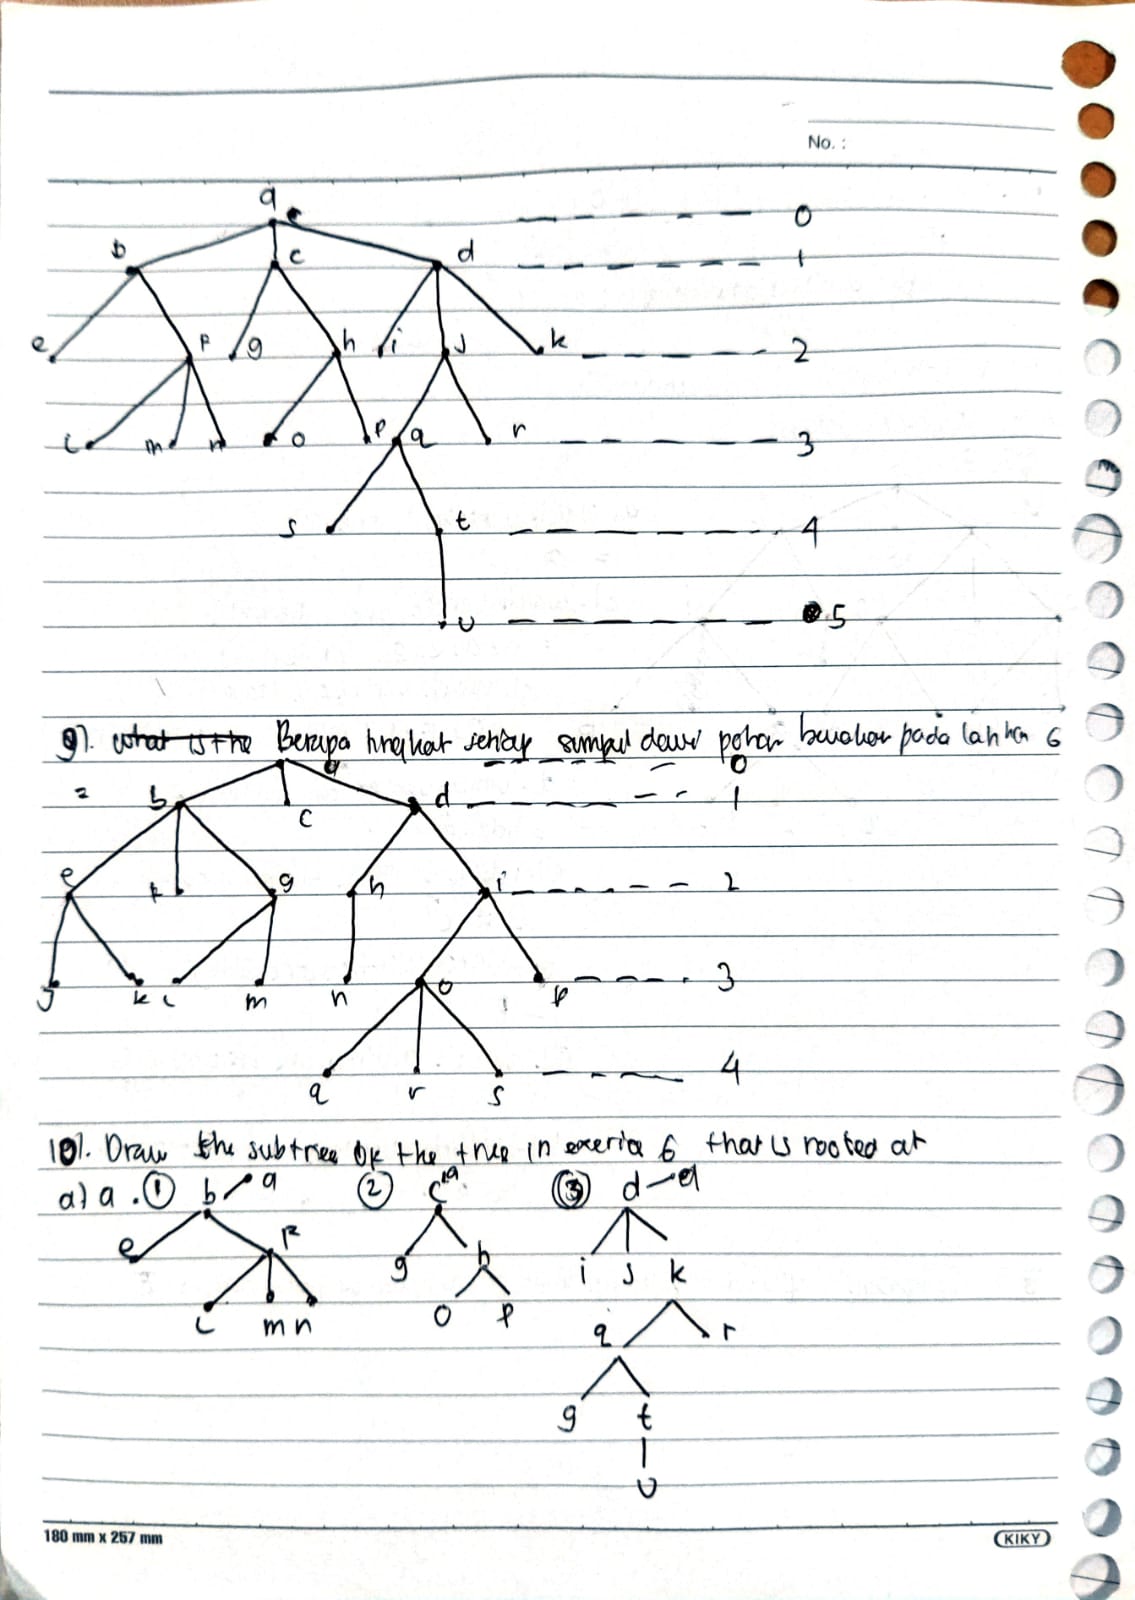 No. :
a 0
b c d 1
e f g h i j k 2
l m n o p q r 3
s t 4
u 5
9). what is the Berapa tingkat setiap simpul dari pohon berakar pada latihan 6
a 0
= b c d 1
e f g h i 2
j k l m n o p 3
q r s 4
10). Draw the subtree of the tree in exercise 6 that is rooted at
a) a . ① b a ② c a ③ d a
e f g h i j k
l m n o p q r
g t
u
180 mm x 257 mm KIKY